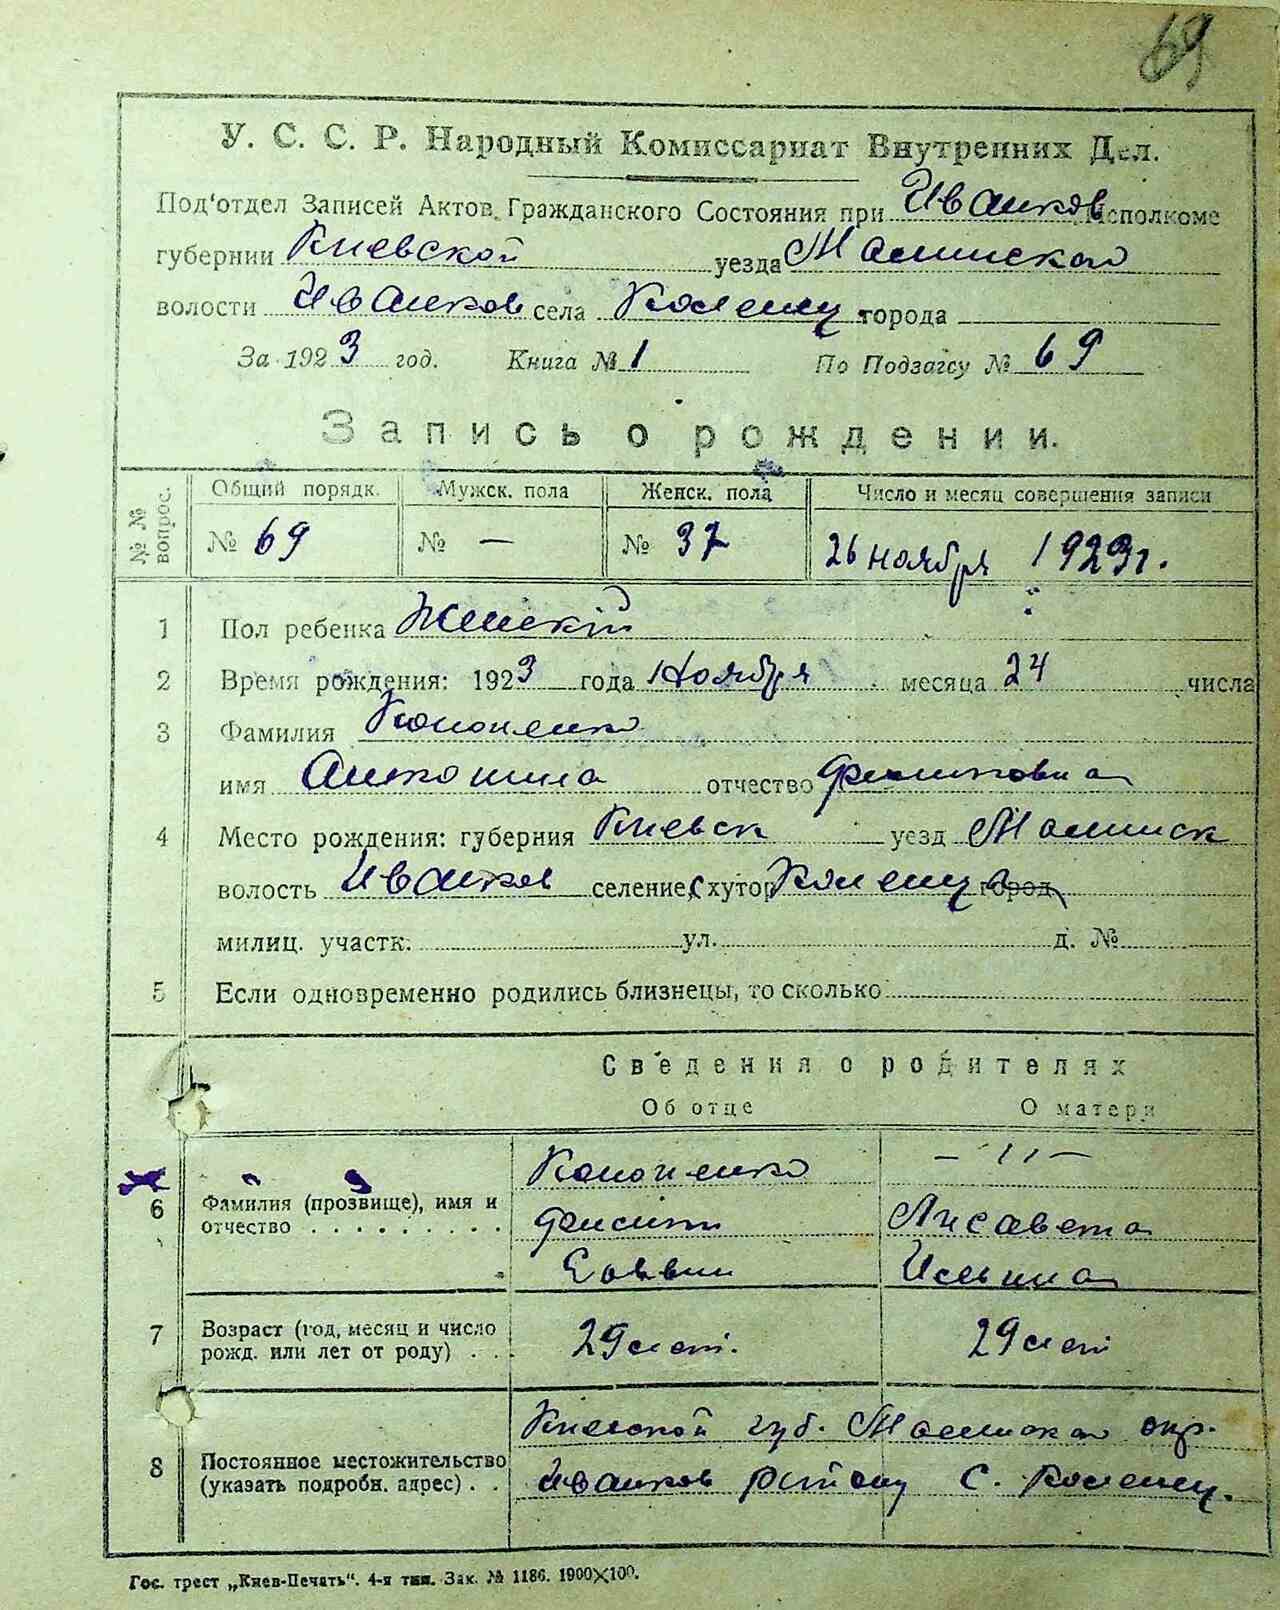 69
У. С. С. Р. Народный Комиссариат Внутренних Дел.
Под'отдел Записей Актов Гражданского Состояния при Иванков Исполкоме
губернии Киевской уезда Малинской
волости Иванков села Коленцы города
За 1923 год. Книга № 1 По Подзагсу № 69
Запись о рождении.
№ № вопрос. Общий порядк. Мужск. пола Женск. пола Число и месяц совершения записи
№ 69 № — № 37 26 ноября 1923 г.
1 Пол ребенка Женскій
2 Время рождения: 1923 года Ноября месяца 24 числа
3 Фамилия Кононенко
имя Антонина отчество
4 Место рождения: губерния Киевск уезд Малинск
волость Иванков селение, хутор Коленцы город
милиц. участк. ул. д. №
5 Если одновременно родились близнецы, то сколько
Сведения о родителях
Об отце О матери
6 Фамилия (прозвище), имя и отчество Кононенко — 〃 —
Лисавета
Саввич Ильина
7 Возраст (год, месяц и число рожд. или лет от роду) 29 лет. 29 лет
8 Постоянное местожительство (указать подробн. адрес) Киевской губ. Малинской окр.
Иванков района С. Коленцы.
Гос. трест „Киев-Печать“. 4-я тип. Зак. № 1186. 1900×100.